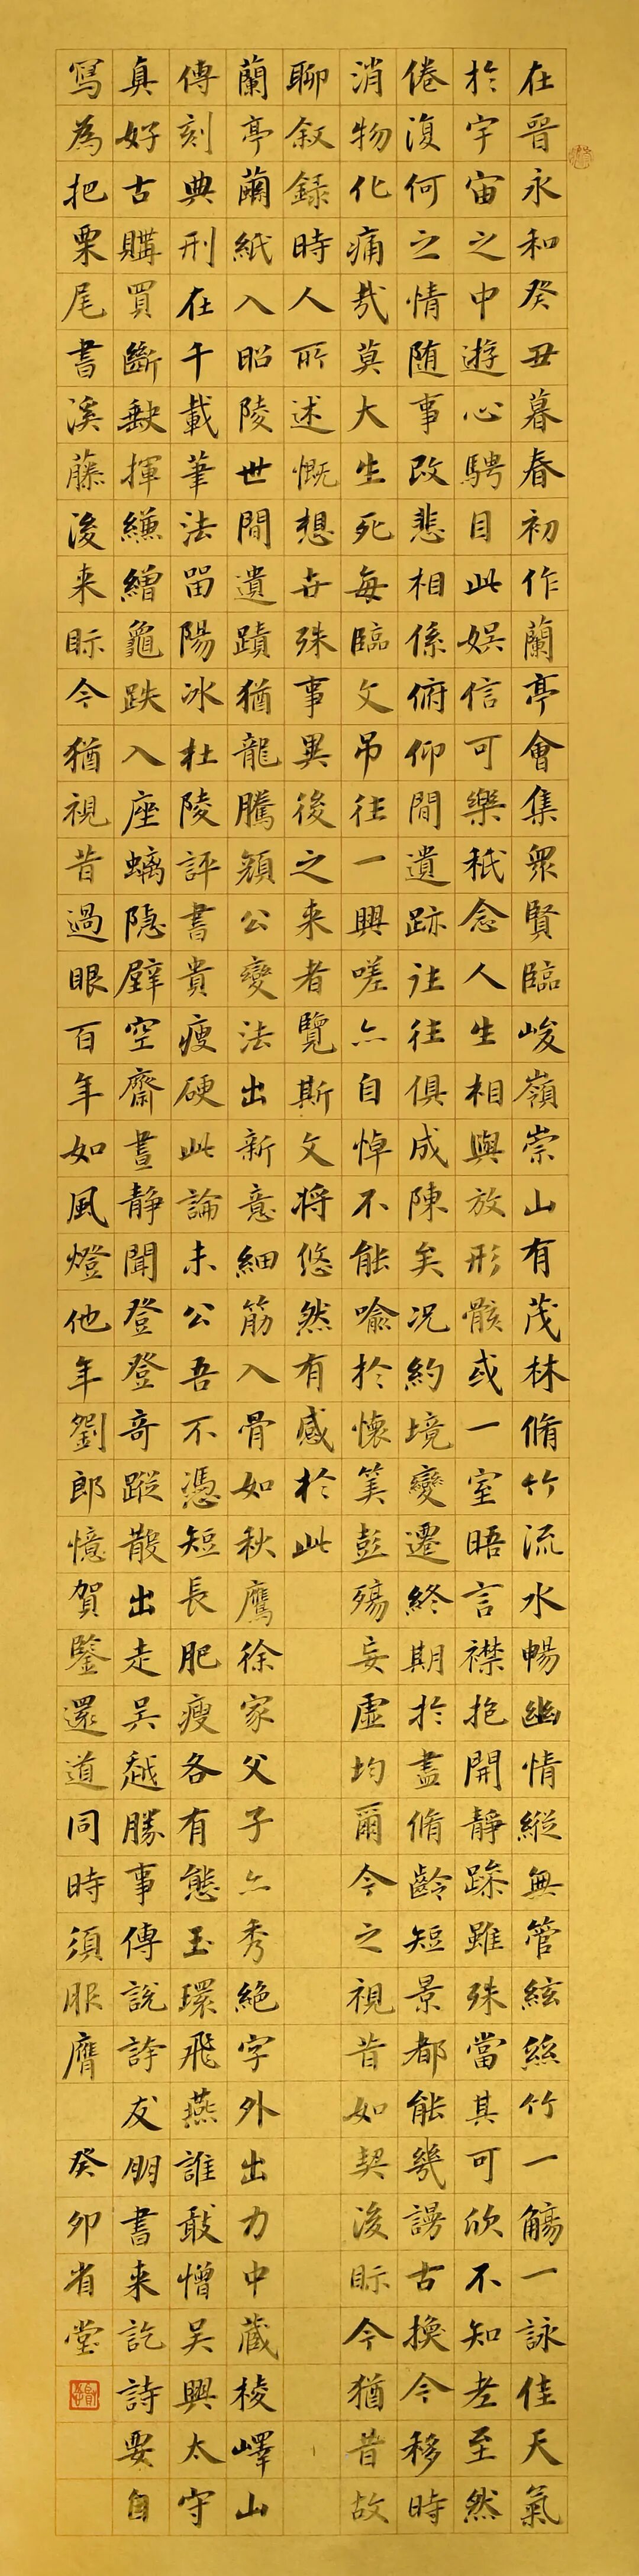 在晉永和癸丑暮春初作蘭亭會集眾賢臨峻嶺崇山有茂林脩竹流水暢幽情縱無管絃絲竹一觴一詠佳天氣
於宇宙之中遊心騁目此娛信可樂秪念人生相與放形骸或一室晤言襟抱開靜躁雖殊當其可欣不知老至然
倦復何之情随事改悲相係俯仰間遺跡往往俱成陳矣况約境變遷終期於盡脩齡短景都能幾謾古換今移時
消物化痛哉莫大生死每臨文吊往一興嗟亦自悼不能喻於懷筭彭殤妄虛均爾今之視昔如契後眎今猶昔故
聊叙録時人所述慨想世殊事異後之来者覽斯文将悠然有感於此
蘭亭繭紙入昭陵世間遺蹟猶龍騰顏公變法出新意細筋入骨如秋鷹徐家父子亦秀絕字外出力中藏棱嶧山
傳刻典刑在千載筆法留陽冰杜陵評書貴瘦硬此論未公吾不憑短長肥瘦各有態玉環飛燕誰敢憎吳興太守
真好古購買斷缺揮縑繒龜趺入座螭隐壁空齋晝静聞登登奇蹤散出走吳越勝事傳說誇友朋書来訖詩要自
寫為把栗尾書溪藤後来眎今猶視昔過眼百年如風燈他年劉郎憶賀鑒還道同時須服膺
癸卯省堂